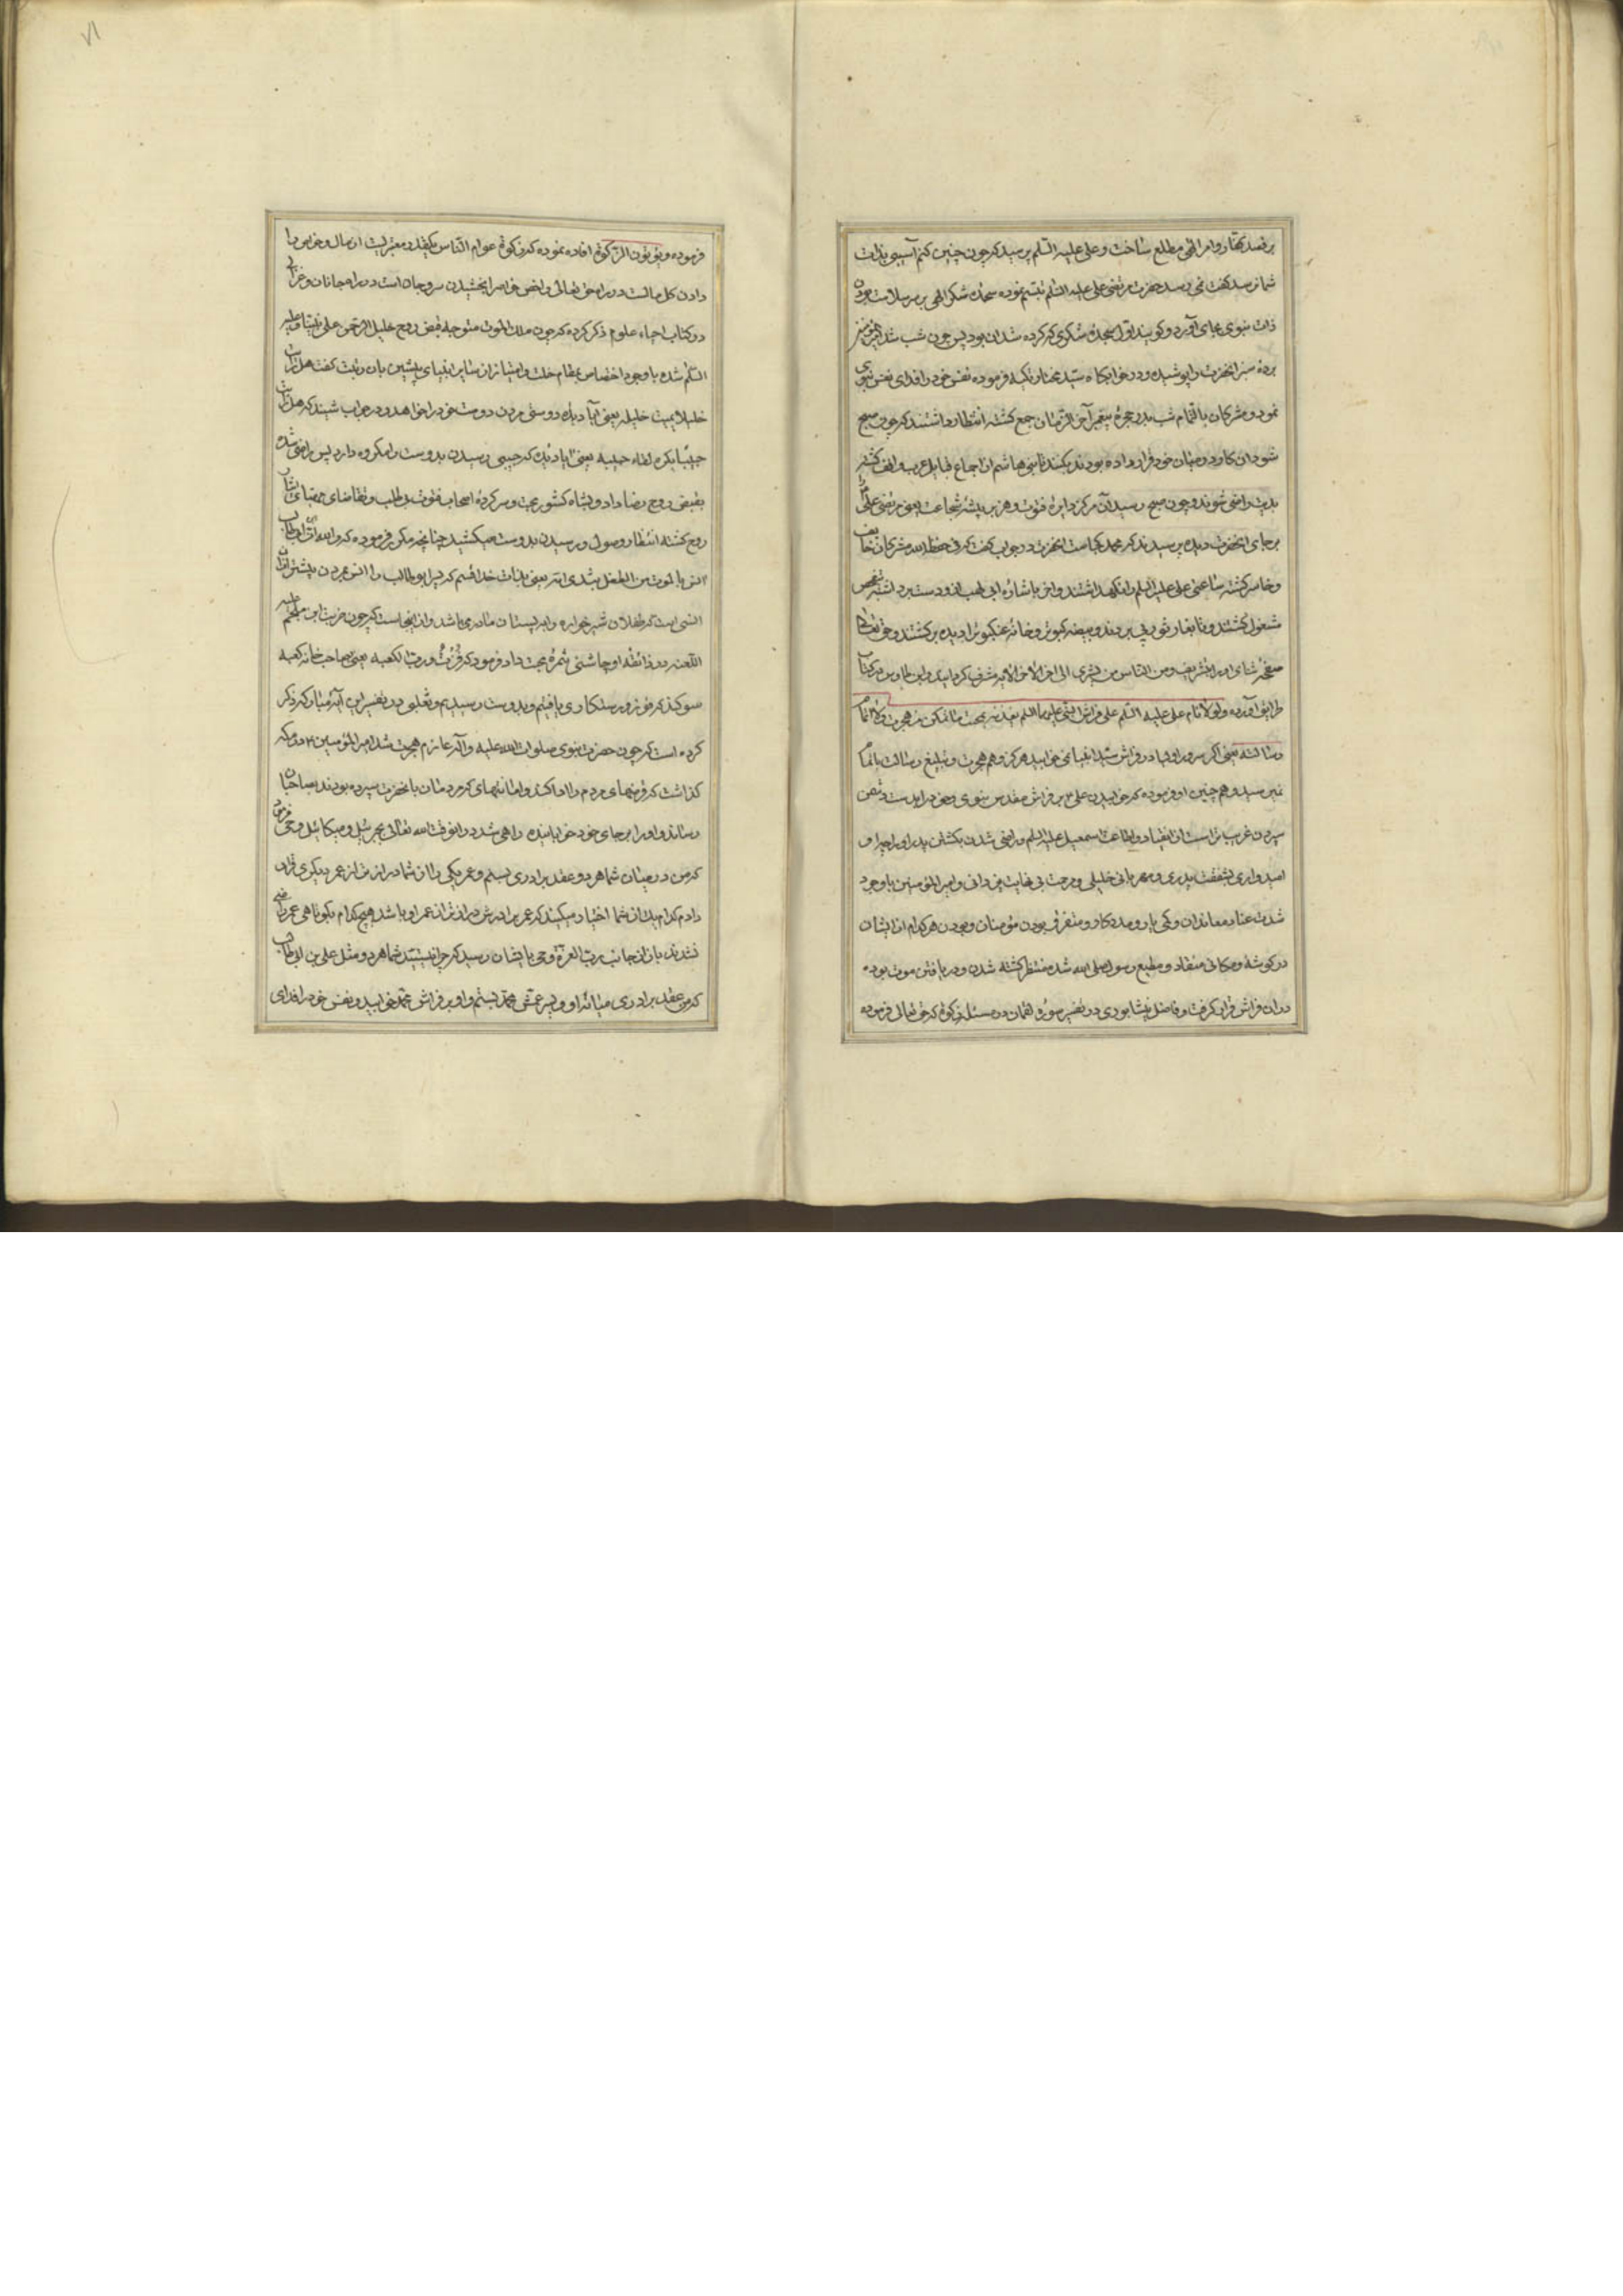 بر قصد کفار و امر الهی مطلع ساخت و علی علیه السلم پرسید که چون چنین کنم آسیبی بذات
شما نرسد گفت نمی رسد حضرت مرتضی علی علیه السلم تبسم نموده سجده شکر الهی بر سر سلامت بودن
ذات نبوی بجای آورد و گویند اول سجده شکری که کرده شد ان بود پس چون شب شد
برد سبز انحضرت را پوشیده و در خوابگاه سید مختار تکیه فرموده نفس خود را فدای نفس نبوی
نمود و مشرکان باتمام شب بدر حجره پیغمبر آخر الزمان جمع گشته انتظار داشتند که چون صبح
شود ان کار که در میان خود قرار داده بودند بکنند تا بنی هاشم از اجماع قبایل عرب واقف گشته
بدیت راضی شوند و چون صبح رسید آن مرکز دایره فتوت و هزبر بیشه شجاعت یعنی مرتضی علی را
بر جای انحضرت دیده پرسیدند که محمد کجاست انحضرت در جواب گفت که فی حفظ الله مشرکان خایف
و خاسر گشته ساعتی علی علیه السلم را نگهداشتند و اخر باشاره ابی لهب از و دست برداشته بتفحص
مشغول گشتند و تا بغار ثور پی بردند و بیضه کبوتر و خانه عنکبوت را دیده برگشتند و حق تعالی
صفحه ثنای او را بتشریف و من الناس من یشری الی اخر الایه مشرف گردانید و ابن طاوس در کتاب
طرایف آورده و لولا نام علی علیه السلم علی فراش النبی علیهما السلم بمحبت ما تمکن من هجرت و لا تمام
رسالته یعنی اگر سرور اولیا در فراش سید انبیا نمی خوابید هرگز وهم هجرت و تبلیغ رسالت باتمام
نمیرسید و هم چنین او فرموده که خوابیدن علی ۴ بر فراش مقدس نبوی و خود را بدست دشمن
سپردن غریب تر است از انقیاد و اطاعت اسمعیل علیه السلم و راضی شدن بکشتن پدر او را چه او
امیدواری بشفقت پدری و مهربانی خلیلی و مرحمت بی نهایت یزدانی و امیر المؤمنین با وجود
شدت عناد معاندان و کمی یار و مددکار و متفرق بودن مؤمنان و بودن هر کدام از ایشان
در گوشه و مکانی منقاد و مطیع رسول صلی الله شده منتظر کشته شدن و دریافتن موت بوده
در ان فراش قرار گرفت و فاضل نیشابوری در تفسیر سوره لقمان در مسئله زکوة که حق تعالی فرموده
فرموده و یؤتون الزکوة افاده نموده که زکوة عوام الناس بقدر معتبریت از مال و خواص را
دادن کل مالست در راه حق تعالی و اخص خواص را بخشیدن سر و جان است در راه جانان و غزالی
در کتاب احیاء علوم ذکر کرده که چون ملک الموت متوجه قبض روح خلیل الرحمن علی نبینا و علیه
السلم شده با وجود اختصاص بمقام خلت و امتیاز از سایر انبیای پیشین بان رتبت گفت هل رایت
خلیلا یمیت خلیله یعنی آیا دیده دوستی مردن دوست خود را خواهد و در جواب شنید که هل رایت
حبیبا یکره لقاء حبیبه یعنی ایا دیده که حبیبی رسیدن بدوست را مکروه دارد پس راضی شده
بقبض روح رضا داد و پشاه کشور محبت و سر کرده اصحاب فتوت بی طلب و تقاضای متقاضی
روح گشته انتظار وصول و رسیدن بدوست میکشید چنانچه مکرر فرموده که و الله لابن ابی طالب
انس بالموت من الطفل بثدی امه یعنی بذات خدا قسم که پسر ابو طالب را انس بمردن بیشتر از ان
انسی است که طفلان شیر خواره را به پستان مادر می باشد و از اینجاست که چون ضربت ابن ملجم علیه
اللعنه در ذائقه او چاشنی ثمره محبت داد فرمود که فزت و رب الکعبه یعنی بصاحب خانه کعبه
سوگند که فوز و رستگاری یافتیم و بدوست رسیدیم و ثعلبی در تفسیر این آیه مبارکه ذکر
کرده است که چون حضرت نبوی صلوات الله علیه و آله عازم هجرت شد امیر المؤمنین ۴ در مکه
گذاشت که قرضهای مردم را ادا کند و امانتهای که مردمان بانحضرت سپرده بودند بصاحبان
رساند و او را بر جای خود خوابانیده راهی شد در انوقت الله تعالی بجبرئیل و میکائیل وحی فرمود
که من در میان شما هر دو عقد برادری بستم و عمر یکی را از شما دراز تر از عمر دیگری قرار
دادم کدام یک از شما اختیار میکنید که عمر برادرش دراز تر از عمر او باشد هیچکدام بکوتاهی عمر راضی
نشدند باز از جانب رب العزة وحی بایشان رسید که چرا نیستید شما هر دو مثل علی بن ابی طالب
که من عقد برادری میانه او و پسر عمش محمد بستم و او بر فراش محمد خوابید و نفس خود را فدای